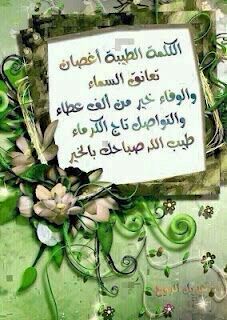 الكلمة الطيبة أغصان
تعانق السماء
والوفاء خير من ألف عطاء
والتواصل تاج الكرماء
طيب الله صباحك بالخير